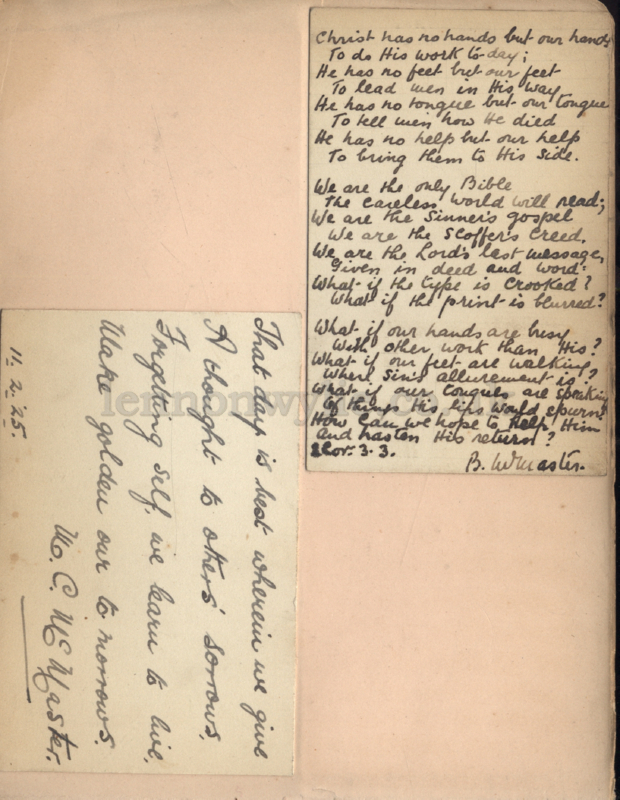 Christ has no hands but our hands
To do His work to-day;
He has no feet but our feet
To lead men in His way
He has no tongue but our tongue
To tell men how He died
He has no help but our help
To bring them to His side.
We are the only Bible
The careless world will read;
We are the Sinner's gospel
We are the Scoffer's Creed.
We are the Lord's last message,
Given in deed and word-
What if the type is crooked?
What if the print is blurred?
What if our hands are busy
With other work than His?
What if our feet are walking
Where Sin's allurement is?
What if our tongues are speaking
Of things His lips would spurn?
How can we hope to help Him
And hasten His return?
2 Cor. 3. 3.
B. McMaster.
That day is best wherein we give
A thought to others' sorrows,
Forgetting self, we learn to live,
Make golden our to morrows.
M. C. McMaster.
11. 2. '25.